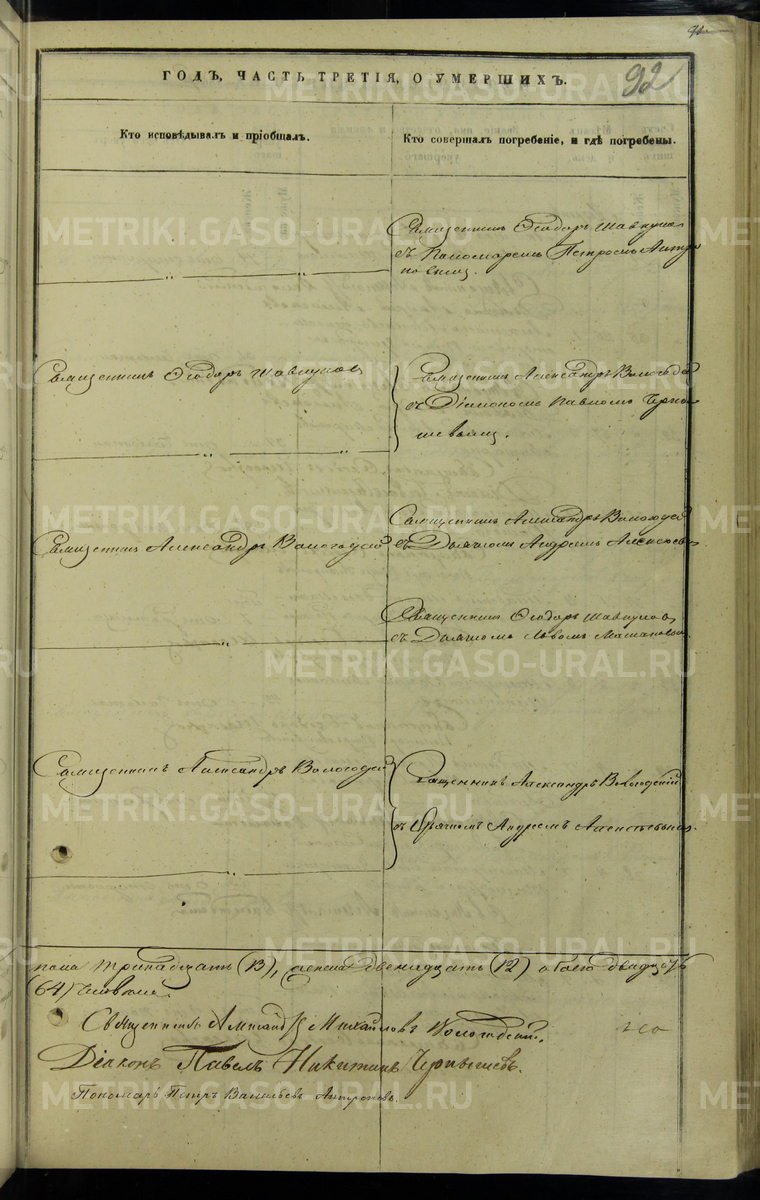 92
ГОДЪ, ЧАСТЬ ТРЕТІЯ, О УМЕРШИХЪ.
Кто исповѣдывалъ и пріобщалъ.
Кто совершалъ погребеніе, и гдѣ погребены.
Священникъ Ѳеодоръ Шавкуновъ
съ Пономаремъ Петромъ Антро
повымъ.
Священникъ Ѳеодоръ Шавкуновъ
Священникъ Александръ Вологод
съ Діакономъ Павломъ Черны
шевымъ.
Священникъ Александръ Вологодскій
Священникъ Александръ Вологодскій
съ Дьячкомъ Андреемъ
Священникъ Ѳеодоръ Шавкуновъ
съ Дьячкомъ Львомъ
Священникъ Александръ Вологодскій
Священникъ Александръ Вологодскій
съ Дьячкомъ Андреемъ
пола тринадцать (13), женска двенадцать (12) а обоего двадцать
Священникъ Александръ Михайловъ Вологодскій.
Діаконъ Павелъ Никитинъ Чернышевъ.
Пономарь Петръ Васильевъ Антроповъ.
METRIKI.GASO-URAL.RU